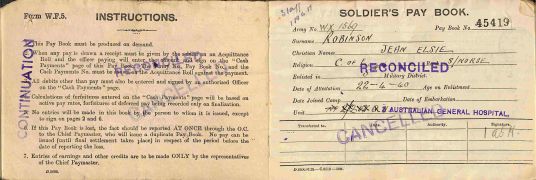 Form W.F.5.
INSTRUCTIONS.
CONTINUATION
This Pay Book must be produced on demand.
When any pay is drawn a receipt must be given by the soldier on an Acquittance
Roll and the officer paying will enter the amount and sign on the "Cash
Payments" page of this Pay Book. Army No. Pay Book No. and the
Cash Payments No. must be Roll against the payment.
All debits other than pay must also be entered and signed by an authorised Officer
on the "Cash Payments" page.
Calculations of forfeitures entered on the "Cash Payments" page will be based on
active pay rates, forfeitures of deferred pay being recorded only on finalisation.
No entries will be made in this book by the person to whom it is issued, except
to sign on pages 3 and 4.
CANCELLED
6. If this Pay Book is lost, the fact should be reported AT ONCE through the O.C.
to the Chief Paymaster, who will issue a duplicate Pay Book. No pay can be
issued (until final settlement takes place) in respect of the period before the
date of reporting the loss.
7. Entries of earnings and other credits are to be made ONLY by the representatives
of the Chief Paymaster.
Staff
SOLDIER'S PAY BOOK.
Army No. WX 1569 Pay Book No. 45419
Surname ROBINSON
Christian Names JEAN ELSIE
Religion C of E S/NURSE
RECONCILED
Enlisted in Military District.
Date of Attestation 22-4-40 Age on Enlistment
Date Joined Camp Date of Embarkation
Unit AUSTRALIAN GENERAL HOSPITAL,
Transferred to Date. Authority. Signature.
CANCELLED